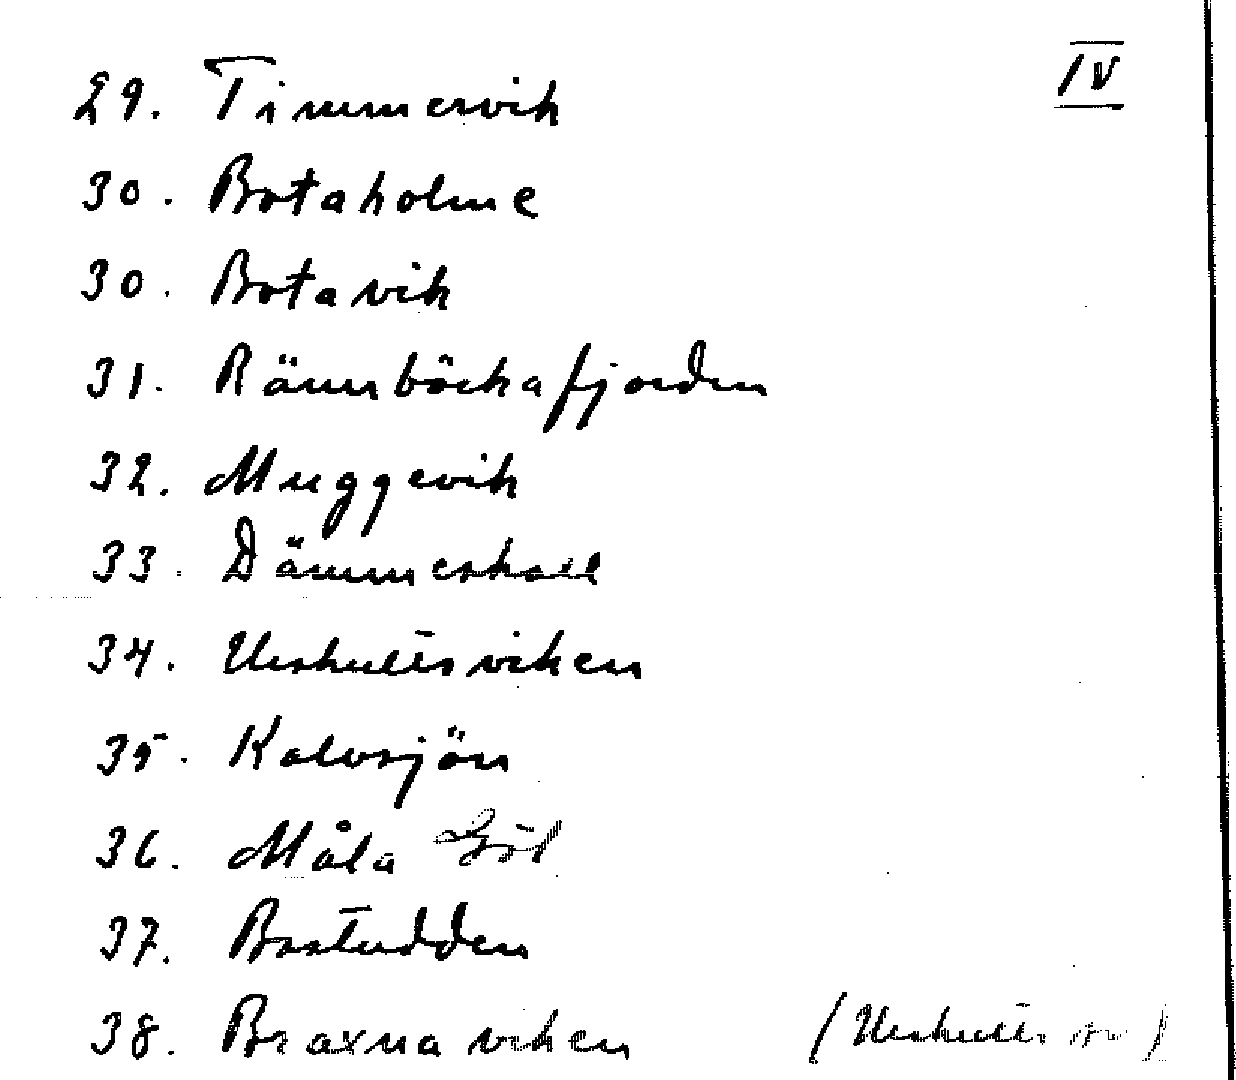 IV
29. Timmervik
30. Botaholme
30. Botavik
31. Rännböckafjorden
32. Muggevik
33. Dämmershall
34. Urshultsviken
35. Kalvsjön
36. Måla Göl
37. Bastudden
38. Braxnaviken (Urshults